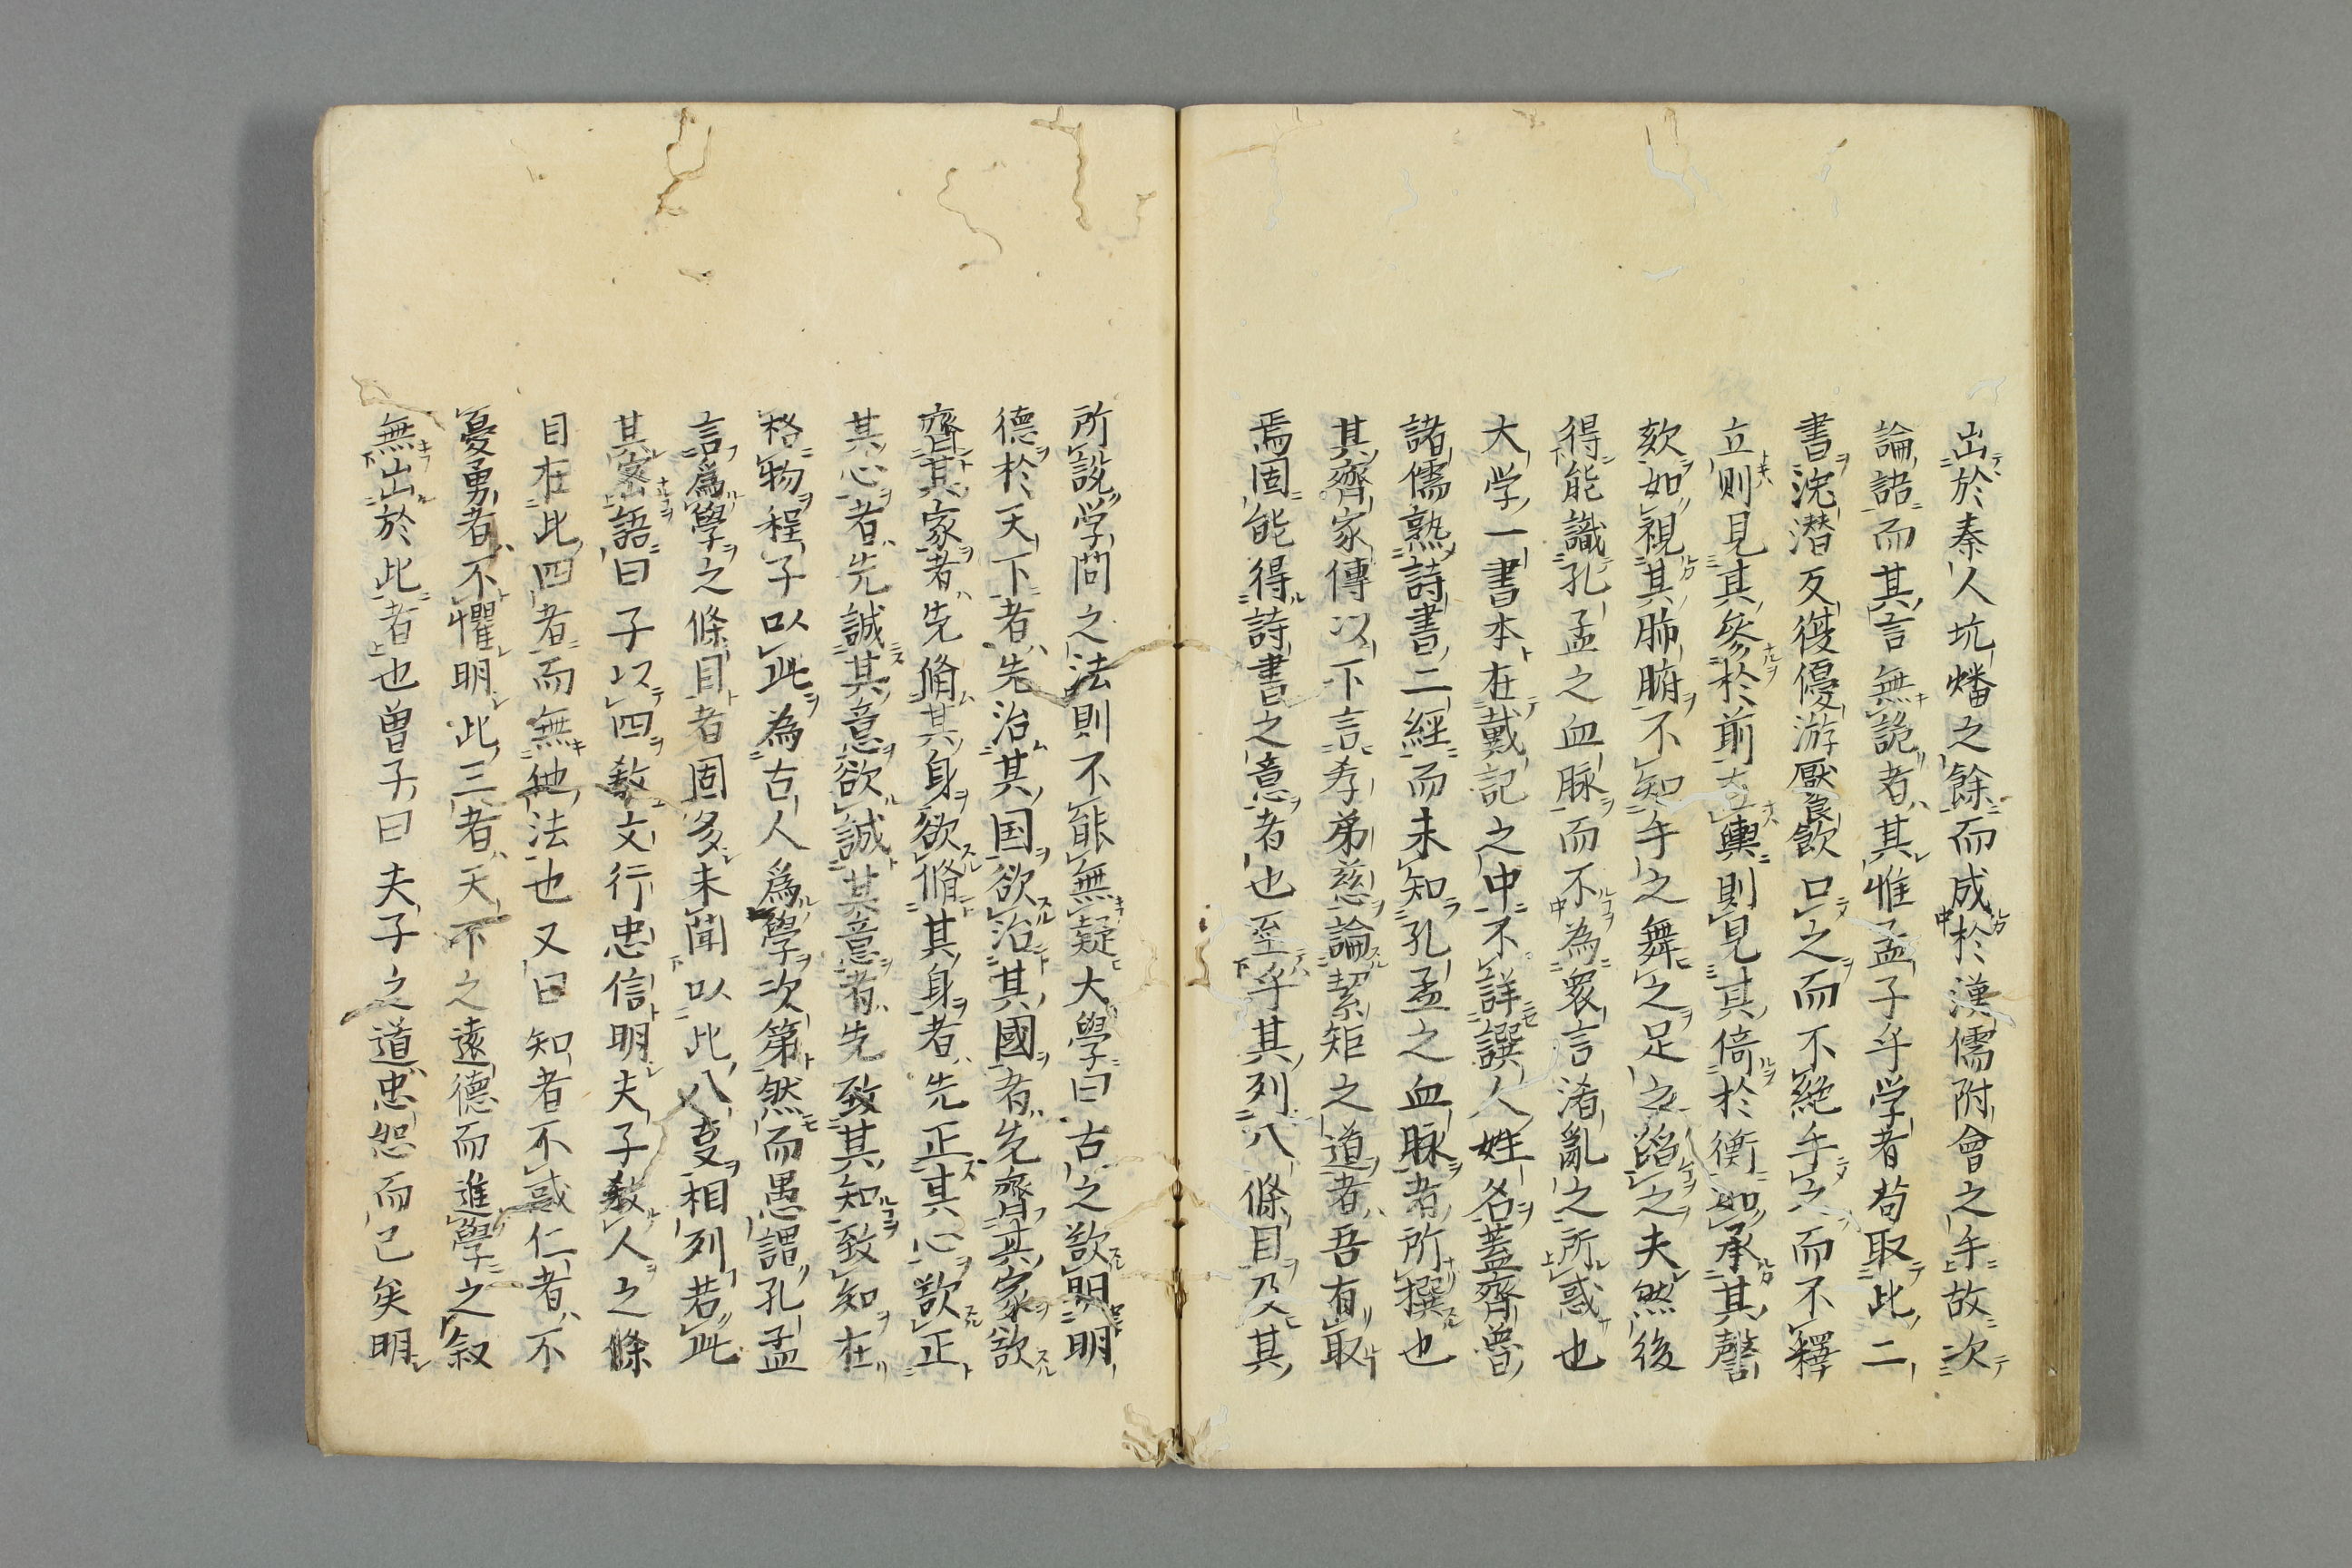 出於秦人坑燔之餘而成於漢儒附會之手故次
論語而其言無詭者其惟孟子乎学者苟取此二
書沈潜反復優游厭飫口之而不絶手之而不釋
立則見其參於前在輿則見其倚於衡如承其謦
欬如視其肺腑不知手之舞之足之蹈之夫然後
得能識孔孟之血脉而不為衆言淆亂之所惑也
大学一書本在戴記之中不詳譔人姓名蓋齊魯
諸儒熟詩書二經而未知孔孟之血脉者所撰也
其齊家傳以下言孝弟慈論絜矩之道者吾有取
焉固能得詩書之意者也至乎其列八條目及其
所説学問之法則不能無疑大學曰古之欲明明
德於天下者先治其国欲治其國者先齊其家欲
齊其家者先脩其身欲脩其身者先正其心欲正
其心者先誠其意欲誠其意者先致其知致知在
格物程子以此為古人爲學次第然而愚謂孔孟
言爲學之條目者固多未聞以此八事相列若此
其密語曰子以四教文行忠信明夫子教人之條
目在此四者而無他法也又曰知者不惑仁者不
憂勇者不懼明此三者天下之達德而進學之叙
無出於此者也曽子曰夫子之道忠恕而已矣明